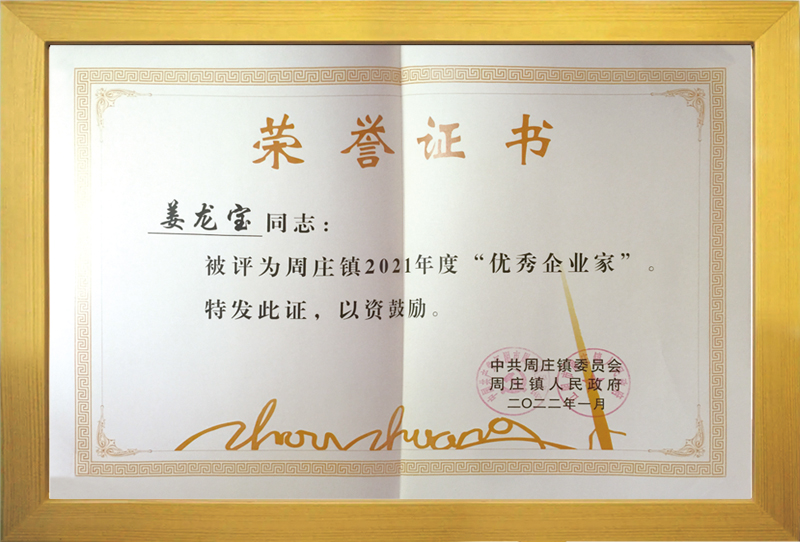 荣誉证书
姜龙宝同志：
被评为周庄镇2021年度“优秀企业家”。
特发此证，以资鼓励。
中共周庄镇委员会
周庄镇人民政府
二〇二二年一月
zhouzhuang